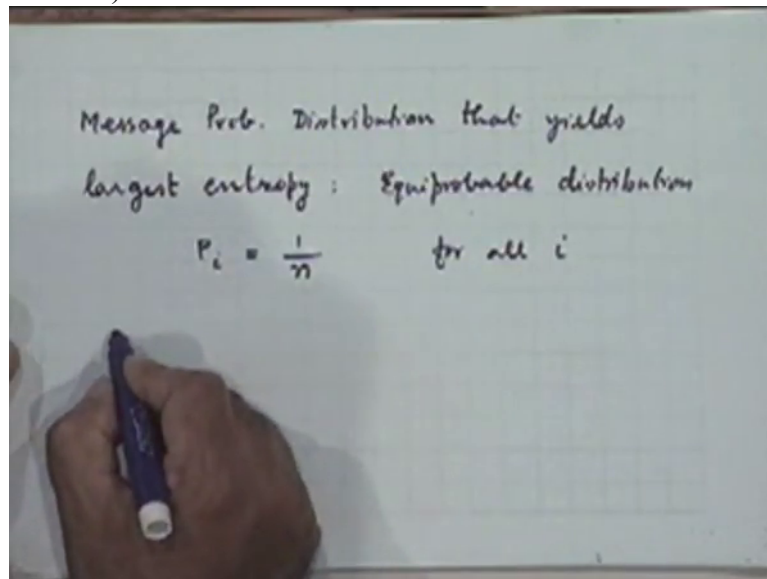 Message Prob. Distribution that yields
largest entropy : Equiprobable distribution
P_i = 1/n for all i